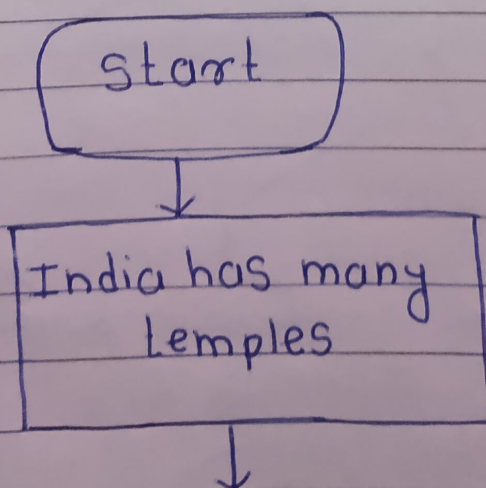 Start
India has many
temples